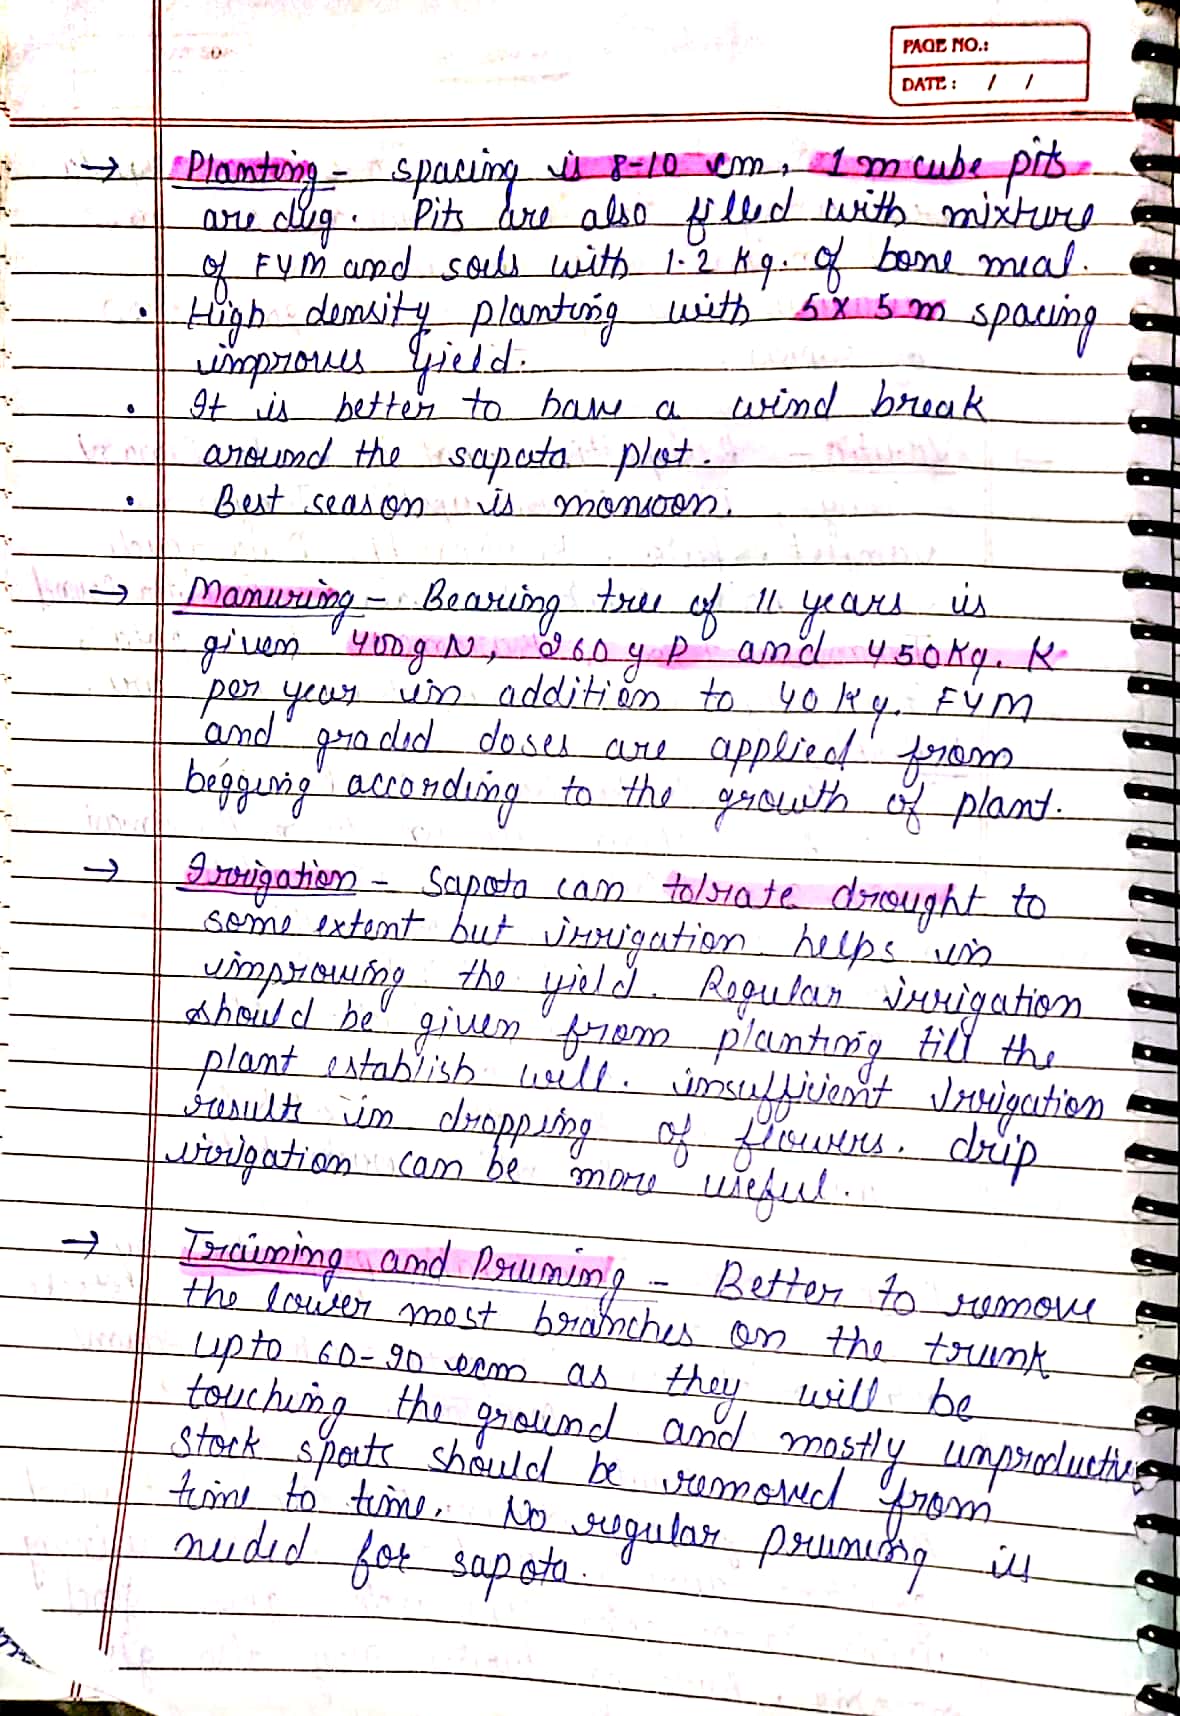 PAGE NO.:
DATE: / /
→ Planting - spacing is 8-10 cm, 1 m cube pits
are dug. Pits are also filled with mixture
of FYM and soils with 1.2 Kg. of bone meal.
• High density planting with 5 x 5 m spacing
improves yield.
• It is better to have a wind break
around the sapota plot.
• Best season is monsoon.
→ Manuring - Bearing tree of 11 years is
given 400g N, 260 g P and 450Kg. K
per year in addition to 40 Kg. FYM
and graded doses are applied from
begging according to the growth of plant.
→ Irrigation - Sapota can tolrate drought to
some extent but irrigation helps in
improwing the yield. Regular irrigation
should be given from planting till the
plant establish well. insufficient Irrigation
results in dropping of flowers. drip
irrigation can be more useful.
→ Training and Pruning - Better to remove
the lower most branches on the trunk
upto 60-90 cm as they will be
touching the ground and mostly unproductive
stock spots should be removed from
time to time. No regular pruning is
needed for sapota.